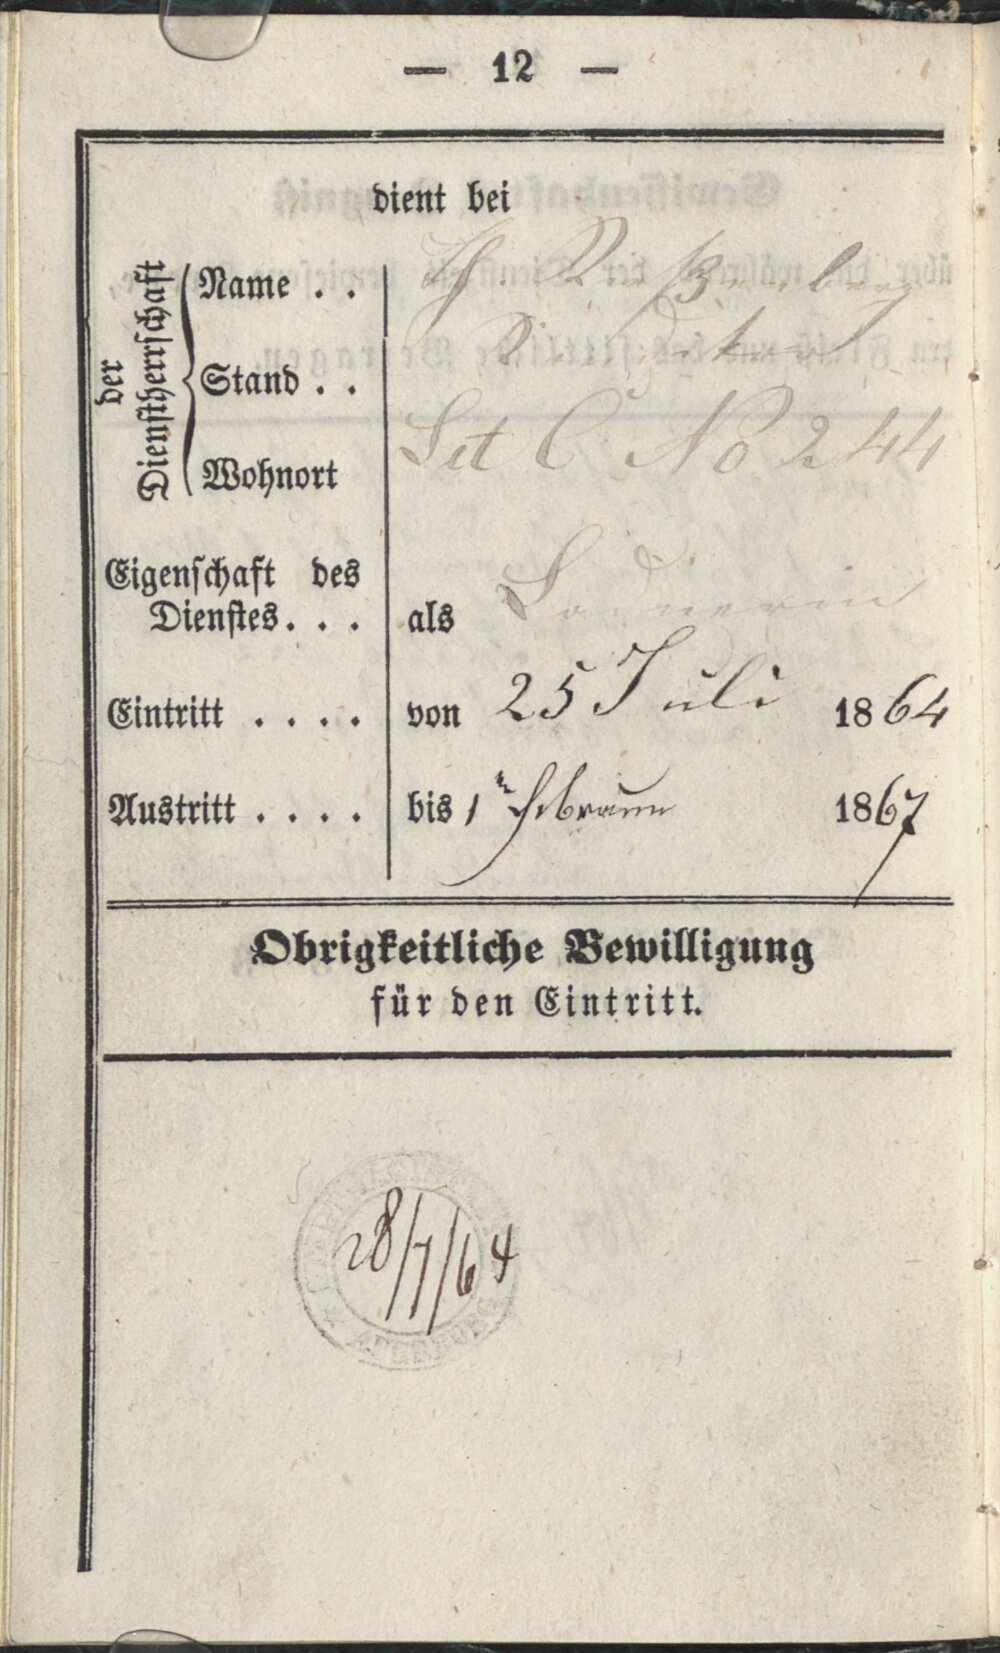 — 12 —
dient bei
der
Dienstherrschaft
Name . .
Stand . .
Wohnort
Lit C No 244
Eigenschaft des
Dienstes. . . als Ladnerin
Eintritt . . . . von 25 Juli 1864
Austritt . . . . bis 1 1867
Obrigkeitliche Bewilligung
für den Eintritt.
28/7/64